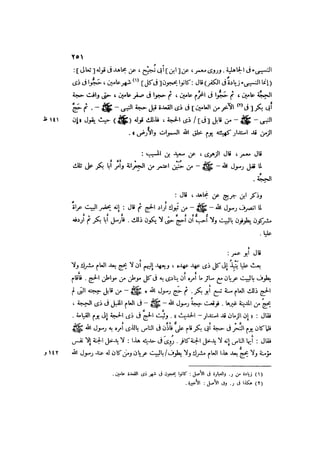 ٢٥١
النسىء فى الجاهلية. وروى معمر، عن [ابن] أبى نَجِيْح، عن مجاهد فى قوله [تعالى]:
(إنما النسىء زيادة فى الكفر) قال: كانوا يحجون [فى كل] (١) شهر عامين، حجُّوا فى ذى
الحِجة عامين، ثم حجوا فى المحرَّم عامين، ثم حجوا فى صفر عامين، حتى وافت حجة
أبى بكر [فى (٢)] الآخر من العامين] فى ذى القعدة قبل حجة النبى — ﷺ —. ثم حَجَّ
النبى — ﷺ — من قابل [فى] / ذى الحجة، فذلك قوله (ﷺ) حيث يقول «إن
١٤١ ظ
الزمن قد استدار كهيئته يوم خلق الله السموات والأرض».
قال معمر، قال الزهرى، عن سعيد بن المسيب:
لما قفل رسول الله — ﷺ — من حُنَيْن اعتمر من الجِعرانة وأَمَّر أبا بكر على تلك
الحِجة.
وذكر ابن جريج عن مجاهد، قال:
لما انصرف رسول الله — ﷺ — من تبوك أراد الحج ثم قال: إنه يحضر البيت عراةٌ
مشركون يطوفون بالبيت ولا أحب أن أحج حتى لا يكون ذلك. فأرسل أبا بكر ثم أردفه
عليا.
قال أبو عمر:
بعث عليا يَنْبِذُ إلى كل ذى عهد عهده، ويعهد إليهم أن لا يحج بعد العام مشرك ولا
يطوف بالبيت عريان مع سائر ما أمره أن ينادى به فى كل موطن من مواطن الحج. فأقام
الحج ذلك العام سنة تسع أبو بكر. ثم حج رسول الله — ﷺ — من قابل حجته التى لم
يحج من المدينة غيرها. فوقعت حِجةُ رسول الله — ﷺ — فى العام المقبل فى ذى الحجة،
فقال: «إن الزمان قد استدار — الحديث». وثبت الحج فى ذى الحجة إلى يوم القيامة.
فلما كان يوم النحر فى حجة أبى بكر قام علىٌّ فأذَّن فى الناس بالذى أمره به رسول الله ﷺ
فقال: أيها الناس إنه لا يدخل الجنة كافر. ورُوِىَ فى حديثه هذا: لا يدخل الجنة إلا نفس
مؤمنة ولا يحج بعد هذا العام مشرك ولا يطوف/ بالبيت عريان ومن كان له عند رسول الله
١٤٢ و
(١) زيادة من ر. والعبارة فى الأصل: كانوا يحجون فى شهر ذى القعدة عامين.
(٢) هكذا فى ر. وفى الأصل: الأخيرة.